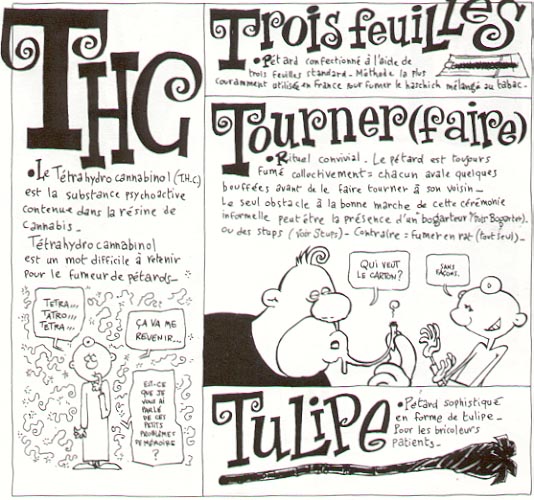 THC
• Le Tétrahydro cannabinol (T.H.C)
est la substance psychoactive
contenue dans la résine de
Cannabis_
Tétrahydro cannabinol
est un mot difficile à retenir
pour le fumeur de pétards_
TETRA...
TATRO...
TETRA...
ÇA VA ME
REVENIR...
EST-CE
QUE JE
VOUS AI
PARLÉ
DE CES
PETITS
PROBLÈMES
DE MÉMOIRE
?
TROIS FEUILLES
• Pétard confectionné à l'aide de
trois feuilles standard_ Méthode la plus
couramment utilisée en France pour fumer le haschich mélangé au tabac_
TOURNER (faire)
• Rituel convivial_ Le pétard est toujours
fumé collectivement = chacun avale quelques
bouffées avant de le faire tourner à son voisin_
Le seul obstacle à la bonne marche de cette cérémonie
informelle peut être la présence d'un "bogarteur" (Voir Bogarter).
ou des stups (Voir Stups)_ Contraire = fumer en rat (tout seul)_
QUI VEUT
LE CARTON?
SANS
FAÇONS.
TULIPE
• Pétard sophistiqué
en forme de tulipe_
Pour les bricoleurs
patients_